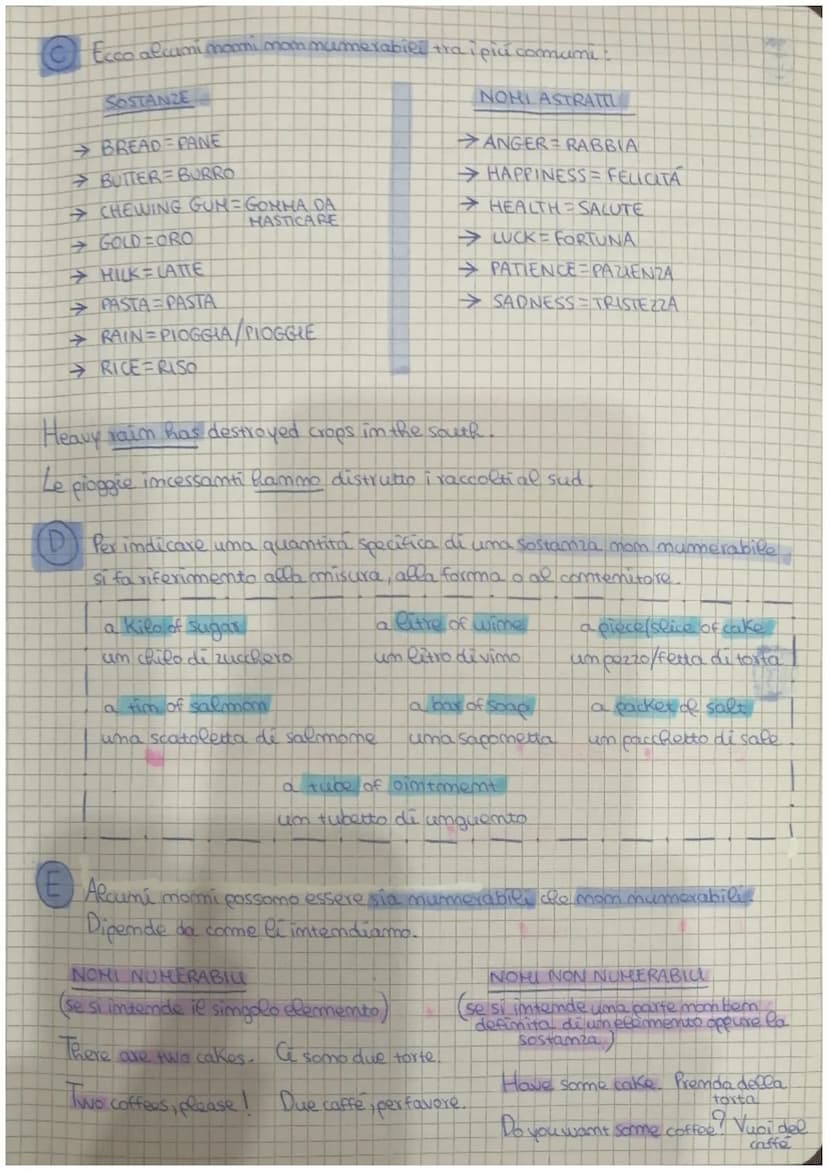 C Ecco alcuni nomi non numerabili tra i più comuni:
SOSTANZE
→ BREAD = PANE
→ BUTTER = BURRO
→ CHEWING GUM = GOMMA DA
MASTICARE
→ GOLD = ORO
→ MILK = LATTE
→ PASTA = PASTA
→ RAIN = PIOGGIA/PIOGGIE
→ RICE = RISO
NOMI ASTRATTI
→ ANGER = RABBIA
→ HAPPINESS = FELICITÁ
→ HEALTH = SALUTE
→ LUCK = FORTUNA
→ PATIENCE = PAZIENZA
→ SADNESS = TRISTEZZA
Heavy rain has destroyed crops in the south.
Le pioggie incessanti hanno distrutto i raccolti al sud.
D Per indicare una quantitá specifica di una sostanza non numerabile
si fa riferimento alla misura, alla forma o al contenitore.
a kilo of sugar a litre of wine a piece/slice of cake
un chilo di zucchero un litro di vino un pezzo/fetta di torta
a tin of salmon a bar of soap a packet of salt
una scatoletta di salmone una saponetta un pacchetto di sale
a tube of ointment
un tubetto di unguento
E Alcuni nomi possono essere sia numerabili che non numerabili.
Dipende da come li intendiamo.
NOMI NUMERABILI
(se si intende il singolo elemento)
There are two cakes. Ci sono due torte.
Two coffees, please! Due caffé, per favore.
NOMI NON NUMERABILI
(se si intende una parte non ben
definita di un elemento oppure la
sostanza)
Have some cake. Prenda della
torta
Do you want some coffee? Vuoi del
caffé